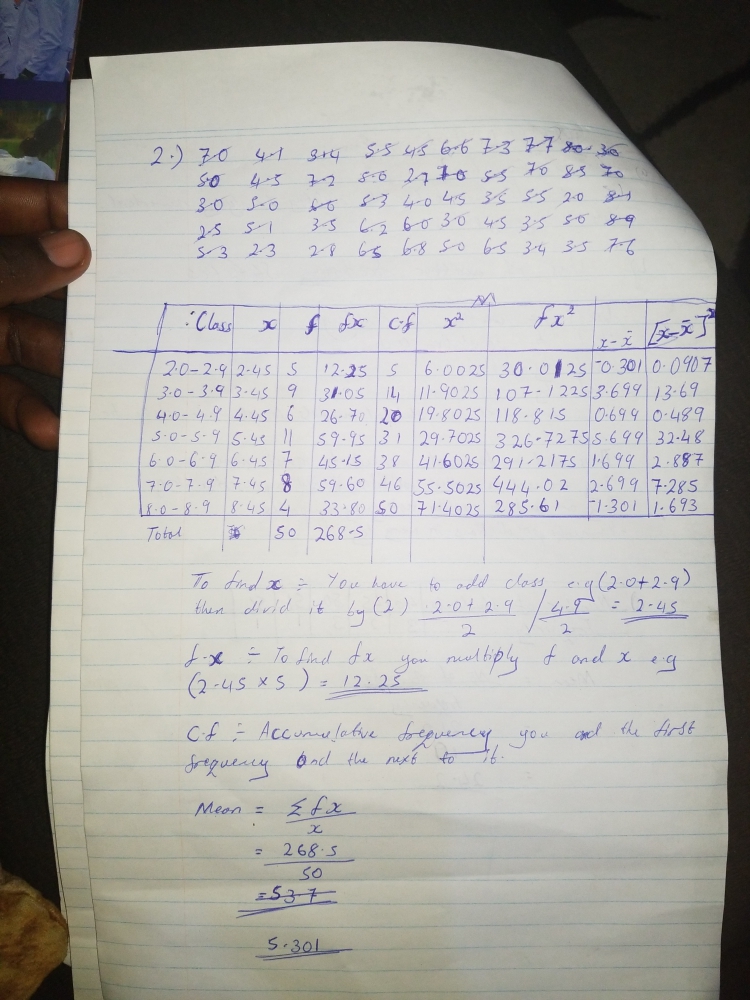 2.) 7.0 4.1 3.4 5.5 4.5 6.6 7.3 7.7 8.0 3.0
5.0 4.5 7.2 5.0 2.7 7.0 5.5 7.0 8.5 7.0
3.0 5.0 5.0 5.3 4.0 4.5 3.5 5.5 2.0 8.1
2.5 5.1 3.5 6.2 6.0 3.0 4.5 3.5 5.0 8.9
5.3 2.3 2.8 6.5 6.8 5.0 6.5 3.4 3.5 7.6
Class x f fx c.f x² fx² x-x̄ [x-x̄]²
2.0-2.9 2.45 5 12.25 5 6.0025 30.0125 -0.301 0.0907
3.0-3.9 3.45 9 31.05 14 11.9025 107-1225 3.699 13.69
4.0-4.9 4.45 6 26.70 20 19.8025 118.815 0.699 0.489
5.0-5.9 5.45 11 59.95 31 29.7025 326.7275 5.699 32.48
6.0-6.9 6.45 7 45.15 38 41.6025 291.2175 1.699 2.887
7.0-7.9 7.45 8 59.60 46 55.5025 444.02 2.699 7.285
8.0-8.9 8.45 4 33.80 50 71.4025 285.61 -1.301 1.693
Total 50 268.5
To find x ÷ You have to add class e.g (2.0+2.9)
then divid it by (2) 2.0+2.9 / 4.9 = 2.45
2 2
f-x ÷ To find fx you multiply f and x e.g
(2.45 x 5) = 12.25
C.f ÷ Accumulative frequency you add the first
frequency and the next to it.
Mean = Σfx
x
= 268.5
50
= 537
5.301